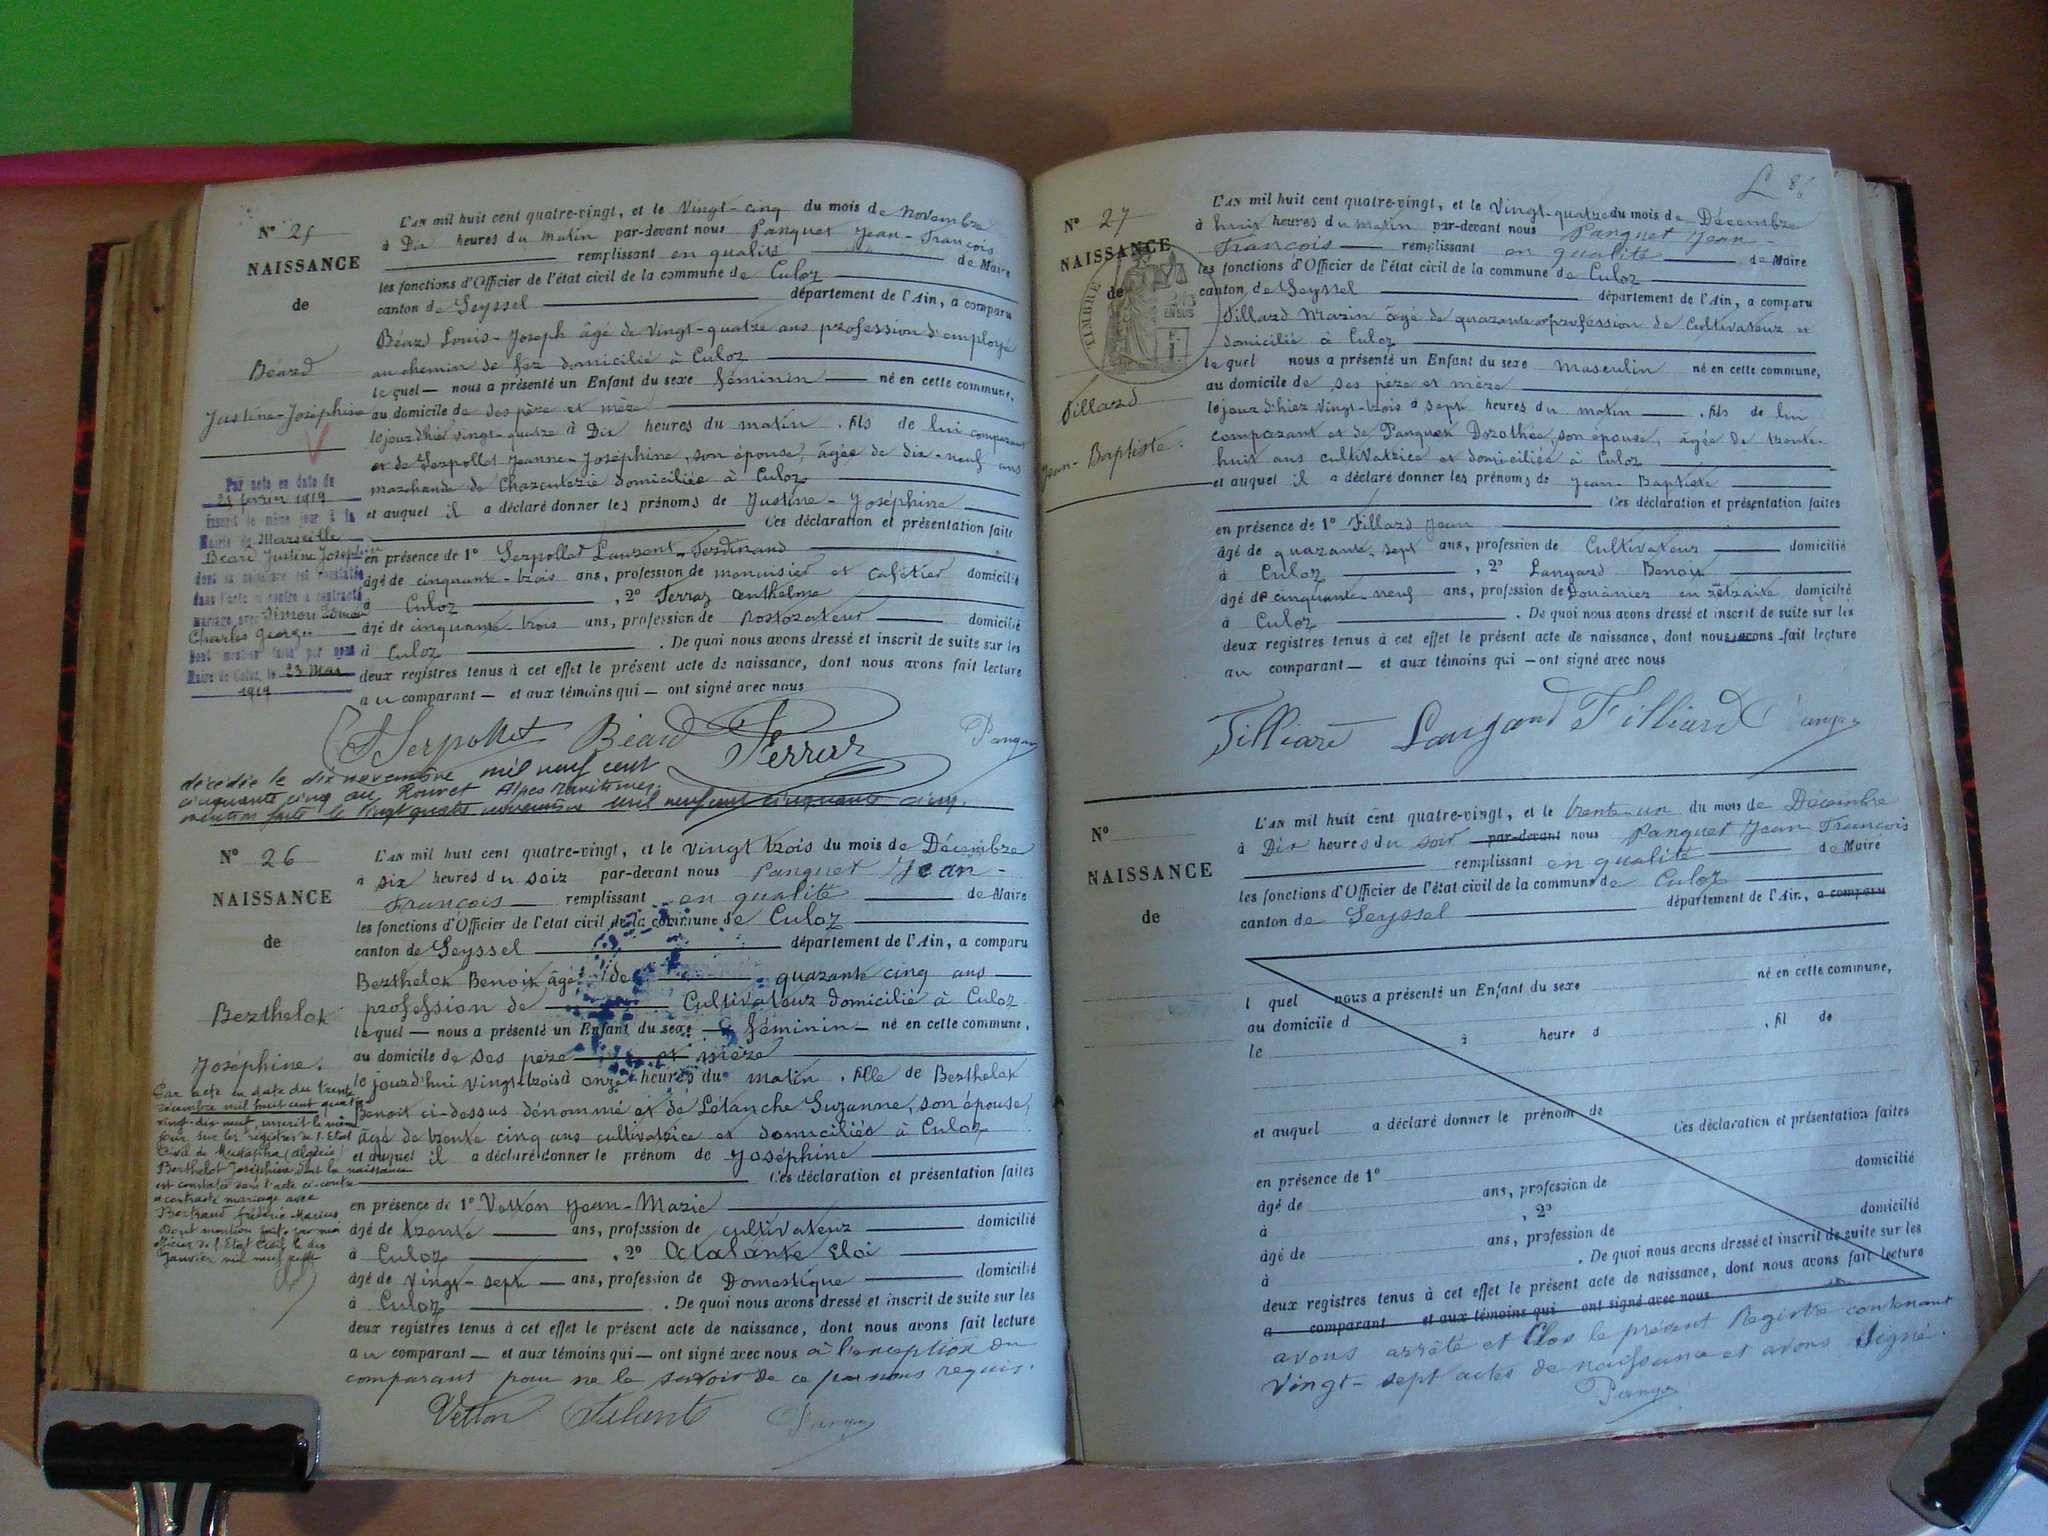 N° 25
NAISSANCE
de
Béard
Justine-Joséphine
Par acte en date du
21 février 1919
inscrit le même jour à la
Mairie de Marseille
Béard Justine Joséphine
dont la naissance est constatée
dans l'acte ci contre a contracté
mariage avec Simon
Charles Georges
Dont mention faite par nous
Maire de Culoz, le 23 Mai
1919
L'AN mil huit cent quatre-vingt, et le Vingt-cinq du mois de Novembre
à Dix heures du matin par-devant nous Panguet Jean-François
remplissant en qualité de Maire
les fonctions d'Officier de l'état civil de la commune de Culoz
canton de Seyssel département de l'Ain, a comparu
Béard Louis-Joseph âgé de vingt-quatre ans profession d'employé
au chemin de fer domicilié à Culoz
le quel nous a présenté un Enfant du sexe féminin né en cette commune,
au domicile de ses père et mère
le jour d'hier vingt-quatre à Dix heures du matin . fils de lui comparant
et de Serpollet Jeanne-Joséphine, son épouse, âgée de dix-neuf ans
marchande de Charcuterie domiciliée à Culoz
et auquel il a déclaré donner les prénoms de Justine-Joséphine
Ces déclaration et présentation faite
en présence de 1° Serpollet Laurent-Ferdinand
âgé de cinquante-trois ans, profession de menuisier et cafetier domicilié
à Culoz , 2° Ferraz Anthelme
âgé de cinquante trois ans, profession de domicilié
à Culoz . De quoi nous avons dressé et inscrit de suite sur les
deux registres tenus à cet effet le présent acte de naissance, dont nous avons fait lecture
au comparant et aux témoins qui ont signé avec nous
Serpollet Béard Ferraz Panguet
décédée le dix novembre mil neuf cent
cinquante cinq au Rouret Alpes Maritimes.
mention faite le vingt quatre novembre mil neuf cent cinquante cinq.
N° 26
NAISSANCE
de
Berthelot
Joséphine.
Par acte en date du trente
décembre mil huit cent quatre
vingt-dix neuf, inscrit le même
jour sur les registres de l'Etat
Civil de Mustapha (Algérie)
Berthelot Joséphine dont la naissance
est constatée dans l'acte ci-contre
a contracté mariage avec
Bertrand Frédéric Marius
Dont mention faite par moi
officier de l'Etat Civil le dix
Janvier mil neuf cent
L'AN mil huit cent quatre-vingt, et le vingt trois du mois de Décembre
à six heures du soir par-devant nous Panguet Jean-
François remplissant en qualité de Maire
les fonctions d'Officier de l'état civil de la commune de Culoz
canton de Seyssel département de l'Ain, a comparu
Berthelot Benoit âgé de quarante cinq ans
profession de Cultivateur domicilié à Culoz
le quel nous a présenté un Enfant du sexe féminin né en cette commune,
au domicile de ses père et mère
le jourd'hui vingt-trois à onze heures du matin . fille de Berthelot
Benoit ci-dessus dénommé et de Létanche Suzanne, son épouse,
âgé de trente cinq ans cultivatrice et domiciliés à Culoz
et auquel il a déclaré donner le prénom de Joséphine
Ces déclaration et présentation faites
en présence de 1° Vetton Jean-Marie
âgé de trente ans, profession de cultivateur domicilié
à Culoz , 2° Atalante Eloi
âgé de vingt-sept ans, profession de Domestique domicilié
à Culoz . De quoi nous avons dressé et inscrit de suite sur les
deux registres tenus à cet effet le présent acte de naissance, dont nous avons fait lecture
au comparant et aux témoins qui ont signé avec nous à l'exception du
comparant pour ne le savoir de ce par nous requis.
Vetton Atalante Panguet
N° 27
NAISSANCE
de
TIMBRE
Fillard
Jean-Baptiste.
L'AN mil huit cent quatre-vingt, et le Vingt-quatre du mois de Décembre
à huit heures du matin par-devant nous Panguet Jean-
François remplissant en qualité de Maire
les fonctions d'Officier de l'état civil de la commune de Culoz
canton de Seyssel département de l'Ain, a comparu
Fillard Marin âgé de quarante profession de Cultivateur et
domicilié à Culoz
le quel nous a présenté un Enfant du sexe masculin né en cette commune,
au domicile de ses père et mère
le jour d'hier vingt-trois à sept heures du matin . fils de lui
comparant et de Panguet Dorothée, son épouse, âgée de trente-
huit ans cultivatrice et domiciliée à Culoz
et auquel il a déclaré donner les prénoms de Jean-Baptiste
Ces déclaration et présentation faites
en présence de 1° Fillard Jean
âgé de quarante-sept ans, profession de Cultivateur domicilié
à Culoz , 2° Langard Benoit
âgé de cinquante-neuf ans, profession de Douanier en retraite domicilié
à Culoz . De quoi nous avons dressé et inscrit de suite sur les
deux registres tenus à cet effet le présent acte de naissance, dont nous avons fait lecture
au comparant et aux témoins qui ont signé avec nous
Filliard Langard Filliard Panguet
N°
NAISSANCE
de
L'AN mil huit cent quatre-vingt, et le trente-un du mois de Décembre
à Dix heures du soir par-devant nous Panguet Jean François
remplissant en qualité de Maire
les fonctions d'Officier de l'état civil de la commune de Culoz
canton de Seyssel département de l'Ain, a comparu
l quel nous a présenté un Enfant du sexe né en cette commune,
au domicile d
le à heure d , fil de
et auquel a déclaré donner le prénom de
Ces déclaration et présentation faites
en présence de 1°
âgé de ans, profession de domicilié
à , 2°
âgé de ans, profession de domicilié
à . De quoi nous avons dressé et inscrit de suite sur les
deux registres tenus à cet effet le présent acte de naissance, dont nous avons fait lecture
a comparant et aux témoins qui ont signé avec nous
avons arrêté et Clos le présent Registre contenant
vingt-sept actes de naissance et avons signé.
Panguet